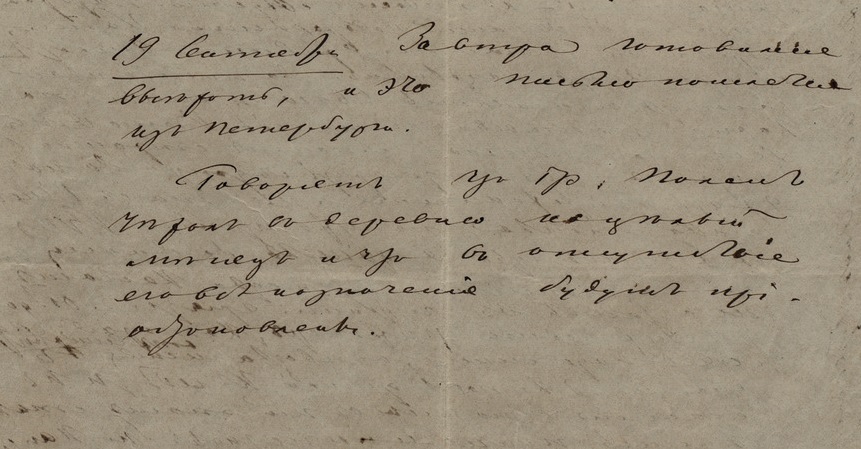 19 Сентября Завтра готовимся
выѣхать, и это письмо пошлется
изъ Петербурга.
Говорятъ что Гр. Паленъ
уѣхалъ въ деревню на цѣлый
мѣсяцъ и что въ отсутствіе
его всѣ назначенія будутъ прі-
остановлены.